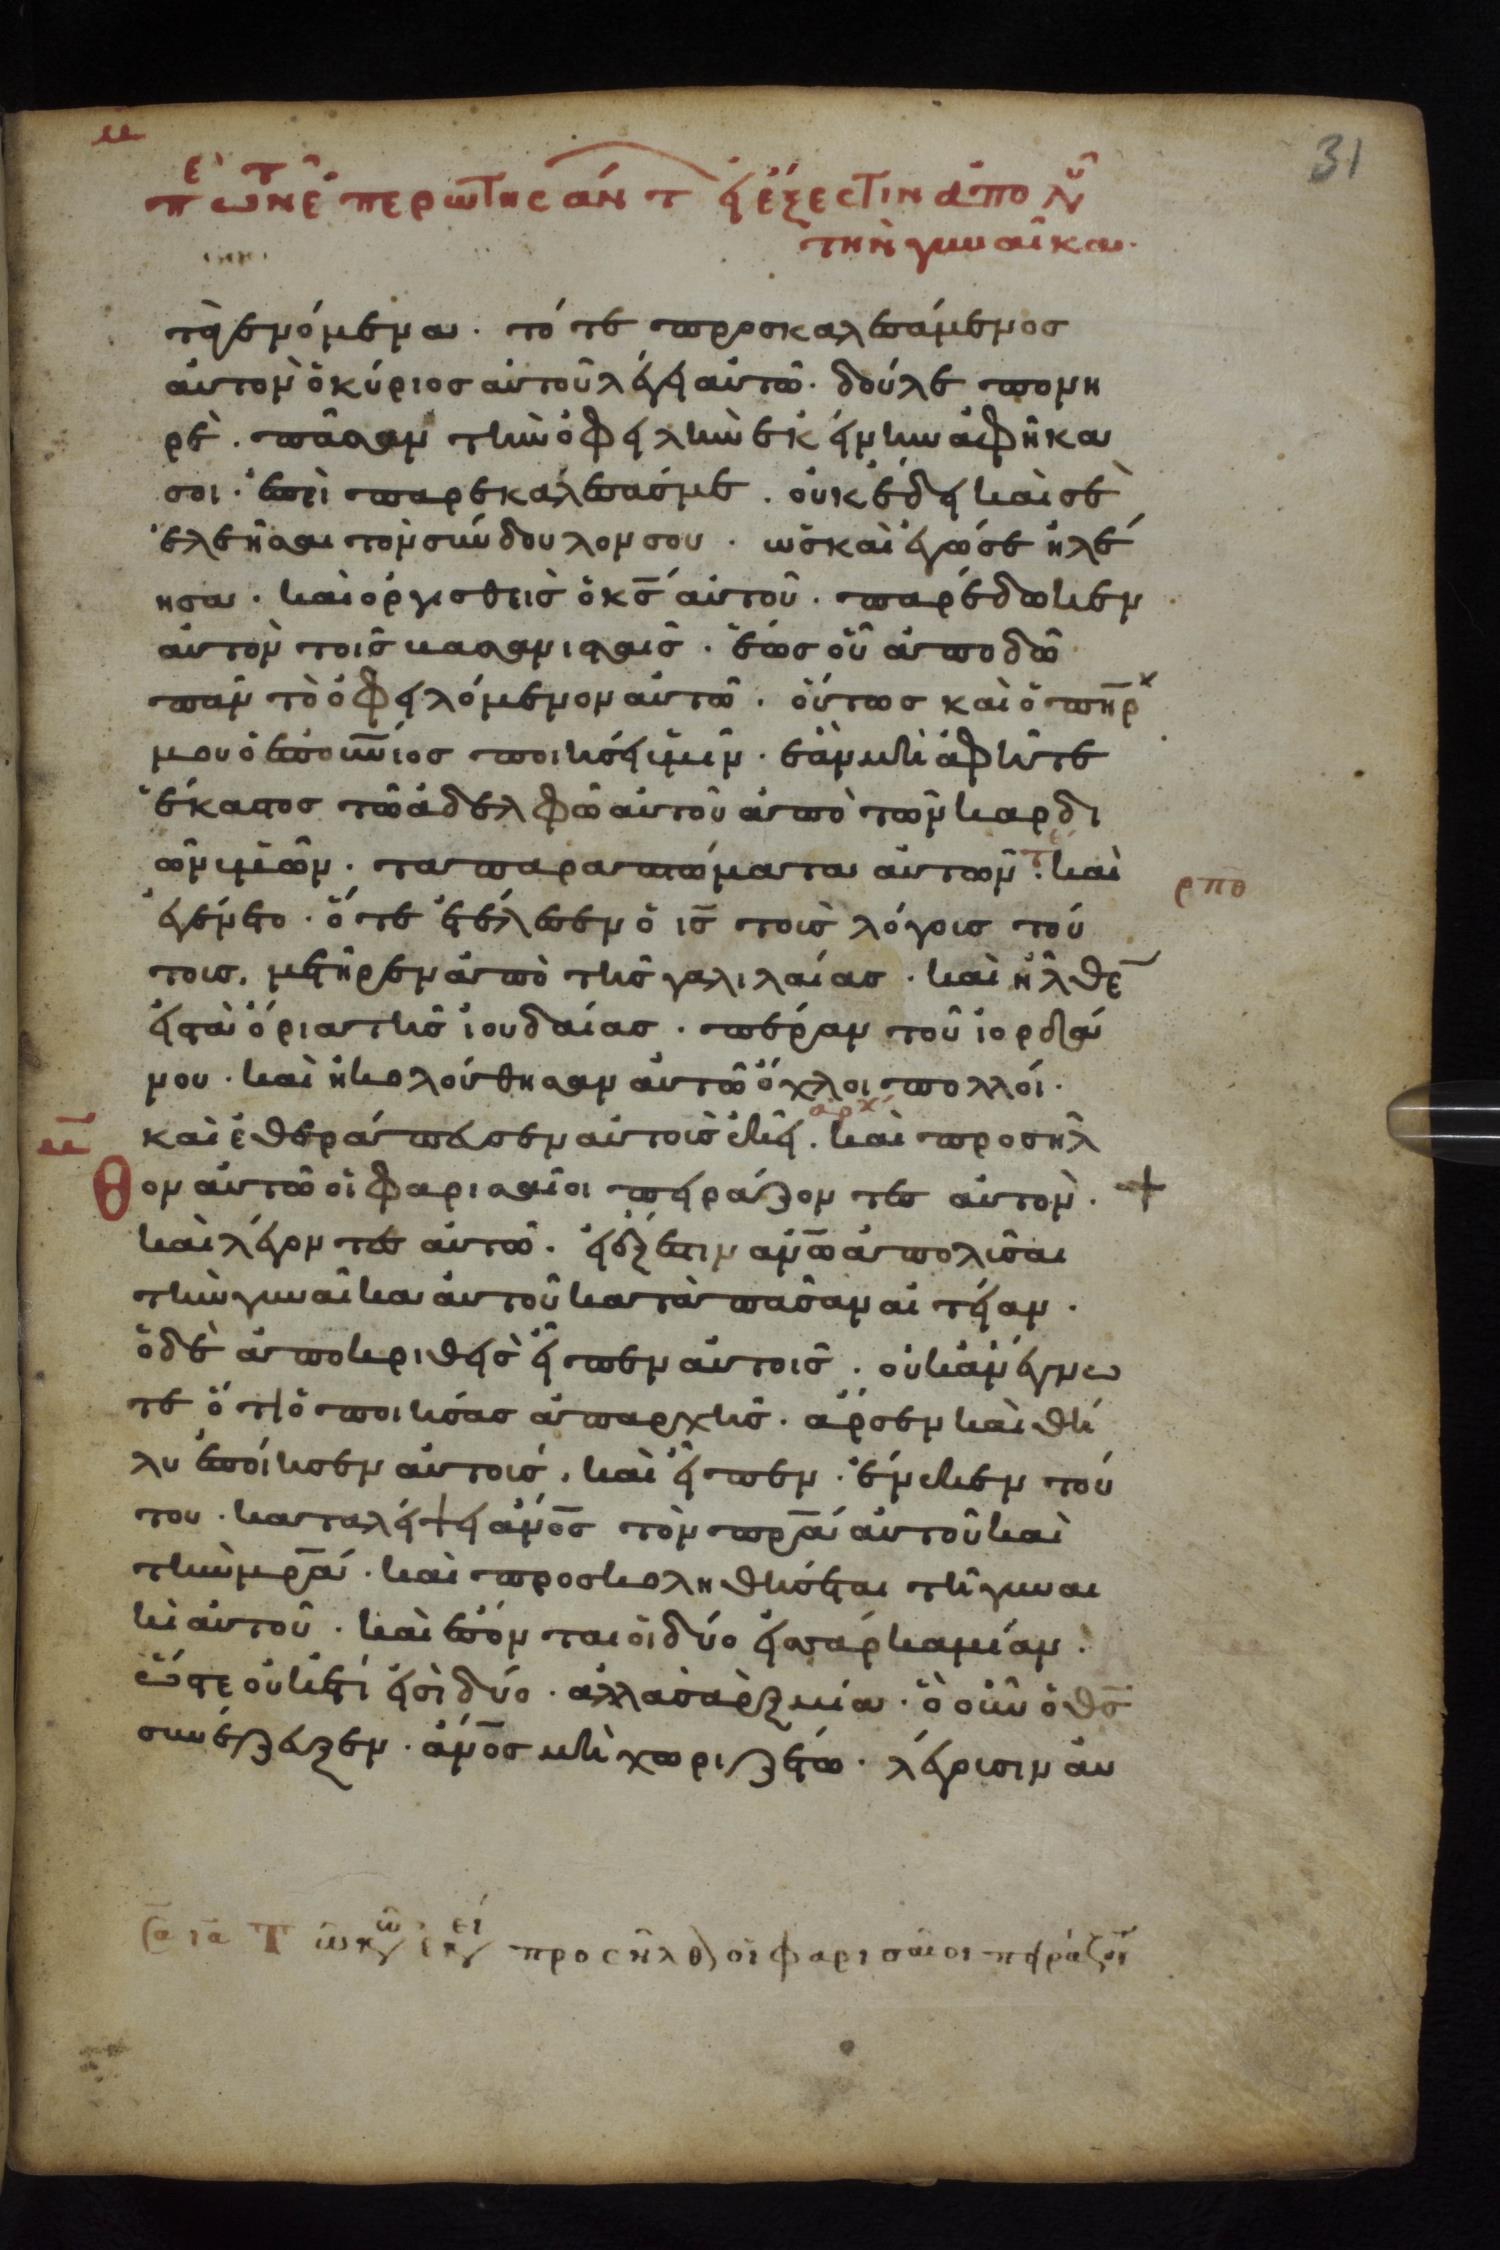 μ
31
πε τῶν ἐπερωτησάντ εἰ ἔξεστιν ἀπολῦ
τὴν γυναῖκα.
τὰ γενόμενα. τότε προσκαλεσάμενος
αὐτὸν ὁ κύριος αὐτοῦ λέγει αὐτῶ. δοῦλε πονη
ρὲ. πᾶσαν τὴν ὀφειλὴν ἐκείνην ἀφῆκα
σοι. ἐπεὶ παρεκάλεσάς με. οὐκ ἔδει καὶ σὲ
ἐλεῆσαι τὸν σύνδουλόν σου. ὡς καὶ ἐγώ σε ἠλέ
ησα. καὶ ὀργισθεὶς ὁ κς̄ αὐτοῦ. παρέδωκεν
αὐτὸν τοῖς βασανισταῖς. ἕως οὗ ἀποδῶ
πᾶν τὸ ὀφειλόμενον αὐτῶ. οὕτως καὶ ὁ πηρ̄
μου ὁ ἐπουνιος ποιήσει ὑμῖν. ἐὰν μὴ ἀφῆτε
ἕκαστος τῶ ἀδελφῶ αὐτοῦ ἀπὸ τῶν καρδι
ῶν ὑμῶν. τὰ παραπτώματα αὐτῶν. τε καὶ
ρπθ
ἐγένετο. ὅτε ἐτέλεσεν ὁ ις̄ τοὺς λόγους τού
τους. μετῆρεν ἀπὸ τῆς γαλιλαίας. καὶ ἦλθε
εἰς τὰ ὅρια τῆς ἰουδαίας. πέραν τοῦ ἰορδά
νου. καὶ ἠκολούθησαν αὐτῶ ὄχλοι πολλοί.
καὶ ἐθεράπευσεν αὐτοὺς ἐκεῖ. ἀρχ καὶ προσῆλ
θον αὐτῶ οἱ φαρισαῖοι πειράζοντες αὐτὸν. +
καὶ λέγοντες αὐτῶ. εἰ ἔξεστιν ανω̄ ἀπολῦσαι
τὴν γυναῖκα αὐτοῦ κατὰ πᾶσαν αἰτίαν.
ὁ δὲ ἀποκριθεὶς εἶπεν αὐτοῖς. οὐκ ἀνέγνω
τε ὅτι ὁ ποιήσας ἀπαρχῆς. ἄρσεν καὶ θῆ
λυ ἐποίησεν αὐτούς. καὶ εἶπεν. ἕνεκεν τού
του. καταλείψει ανο̄ς τὸν πρ̄α αὐτοῦ καὶ
τὴν μρ̄α. καὶ προσκολληθήσεται τῆ γυναι
κὶ αὐτοῦ. καὶ ἔσονται οἱ δύο εἰς σάρκα μίαν.
ὥστε οὐκέτι εἰσὶ δύο. ἀλλὰ σὰρξ μία. ὃ οὖν ὁ θς̄
συνέζευξεν. ανο̄ς μὴ χωριζέτω. λέγουσιν αὐ
προσῆλθ οἱ φαρισαῖοι πειράζον